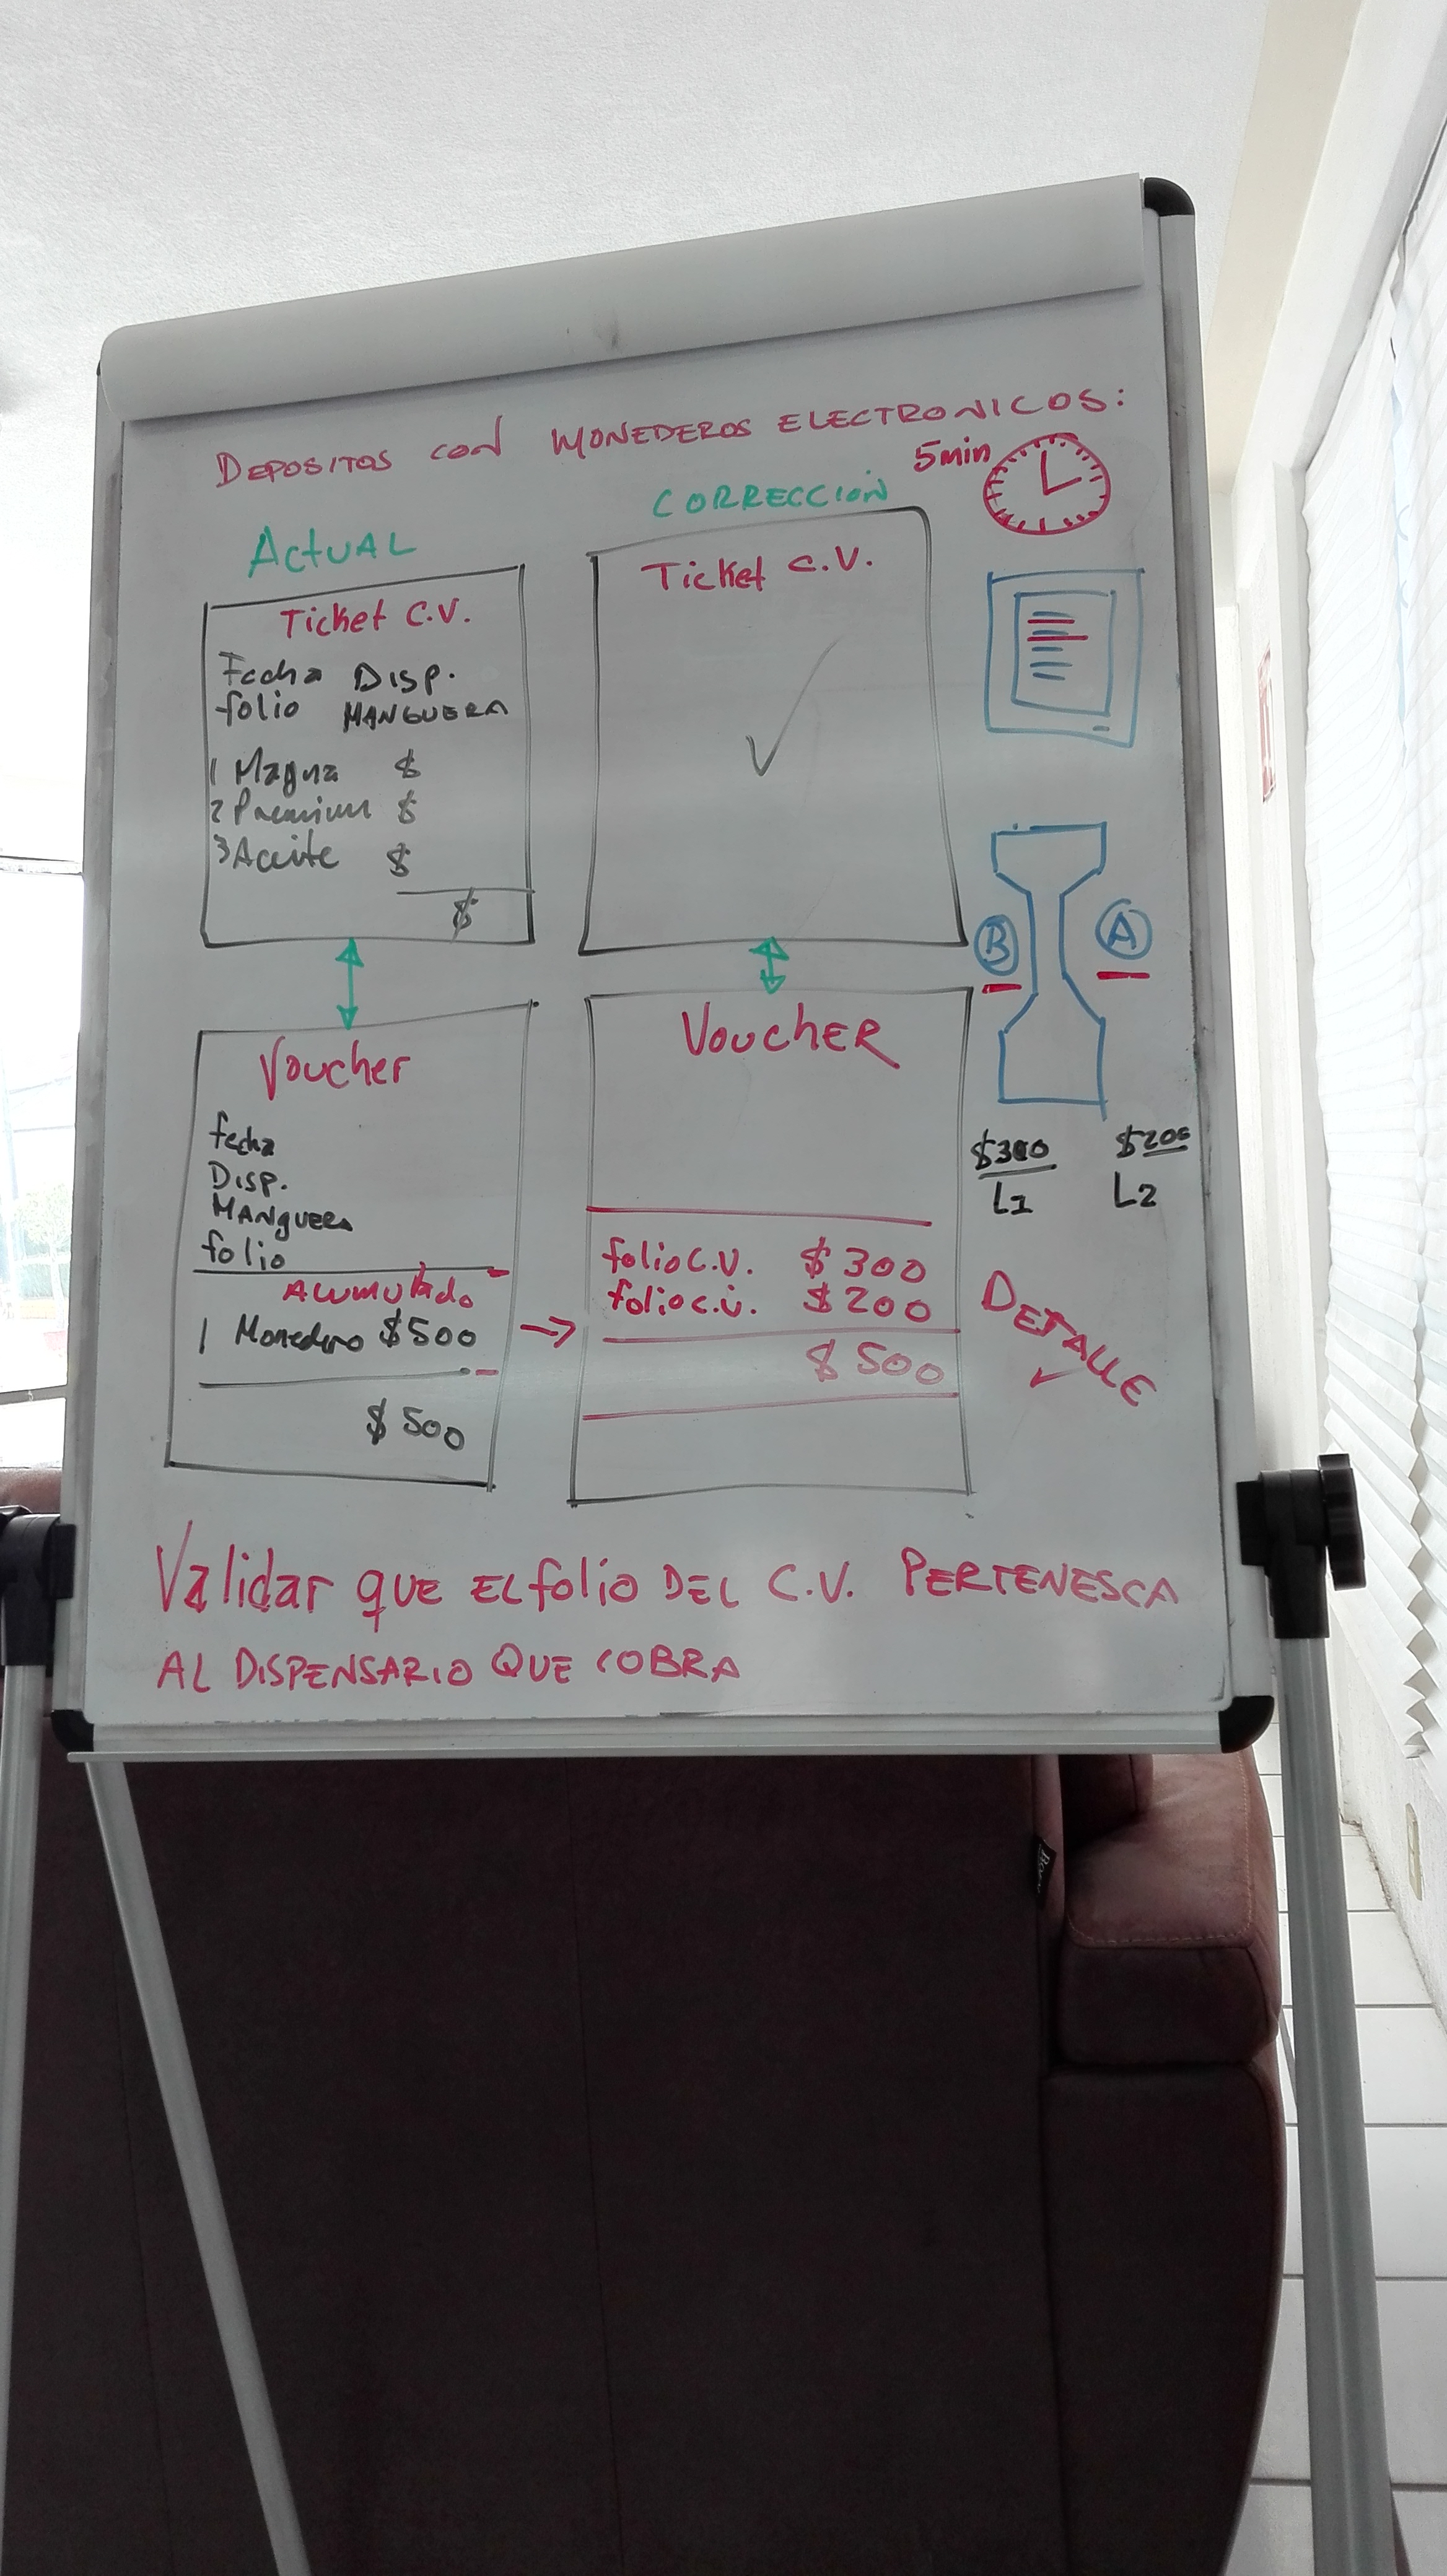 DEPOSITOS CON MONEDEROS ELECTRONICOS:
5min
Actual
Ticket C.V.
Fecha Disp.
folio MANGUERA
1 Magna $
2 Premium $
3 Aceite $
$
Voucher
fecha
Disp.
MANguera
folio
Acumulado
1 Monedero $500
$500
CORRECCION
Ticket C.V.
VoucheR
folio C.V. $300
folio c.v. $200
$500
B
A
$300
L1
$200
L2
DETALLE
Validar que EL folio DEL C.V. PERTENESCA
AL DISPENSARIO QUE COBRA